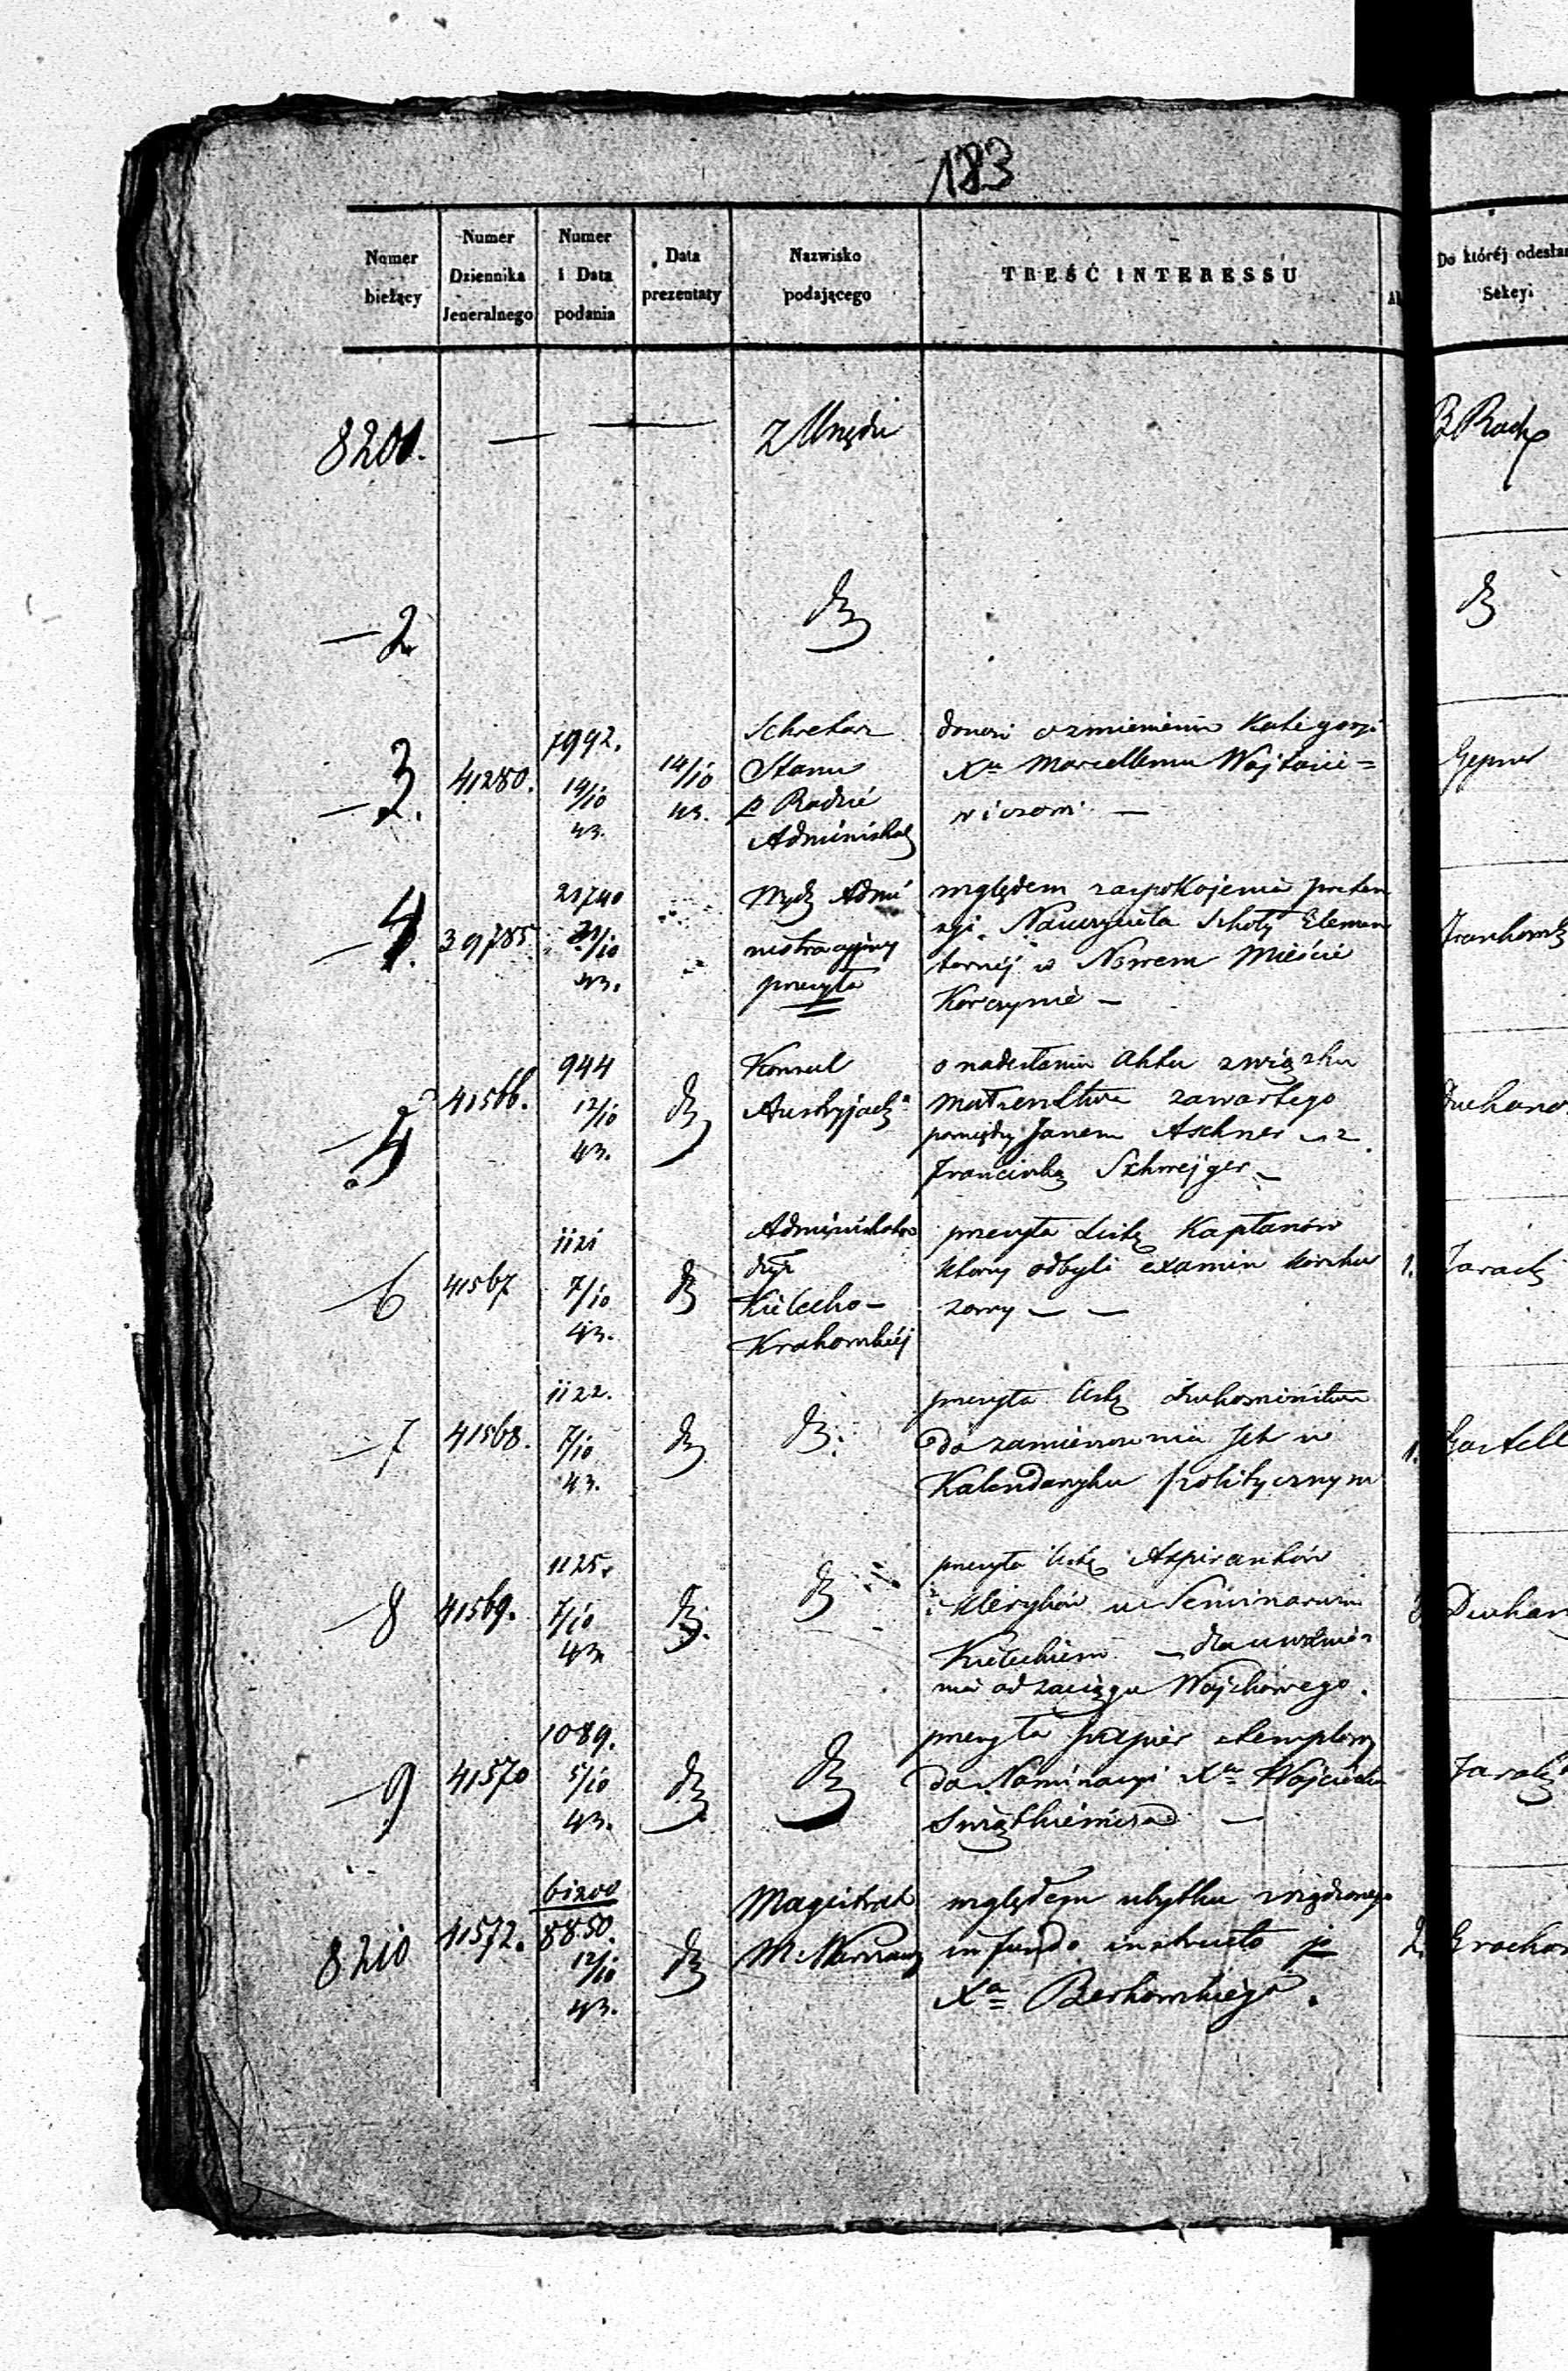 183
Numer bieżący
Numer Dziennika Jeneralnego
Numer i Data podania
Data prezentaty
Nazwisko podającego
TREŚĆ INTERESSU
Do któréj odesłan
Sekcyi
8201. — — z Urzędu
— 2 dto
— 3. 41280. 7992. 14/10 43. 14/10 43. Sekretarz
Stanu
p Radzie
Administra
donosi o zmienieniu Kategoryi
Xu Marcellemu Wojtasie=
wiczowi —
— 4. 39785 21740 43. Wydz Admi
nistracyjny
przesyła
względem zaspokojenia preten
syi Nauczyciela Szkoły Elemen
tarnéj w Nowem Mieście
Korczynie —
— 5 41566. 944 12/10 43. dto Konsul
Austryjacki
o nadesłanie Aktu związku
małżeństwa zawartego
pomiędzy Janem Aschner a
Franciszką Szhwejger —
— 6 41567 1121 7/10 43. dto Administrator
dyz
Kielecko—
Krakowskiéj
przesyła Listę Kapłanów
którzy odbyli examin konku
rsowy — —
— 7 41568. 1122. 7/10 43. dto dto
przesyła listę Duchowieństwa
do zamieszczenia Jéj w
Kalendarzyku politycznym
— 8 41569. 1125. 7/10 43. dto dto
przesyła listę Aspirantów
i Kleryków w Seminarium
Kieleckiem — dla uwolnie=
nia od zaciągu Wojskowego.
— 9 41570 1089. 5/10 43. dto dto
przesyła papier stemplowy
do Nominacyi Xa Wojciecha
Swiątkiewicza —
8210 41572. 61200 8850. 12/10 43. dto Magistrat
M. Warszawy
względem ubytku zrządzonego
in fundo instructo po
Xu Berkowskiego.